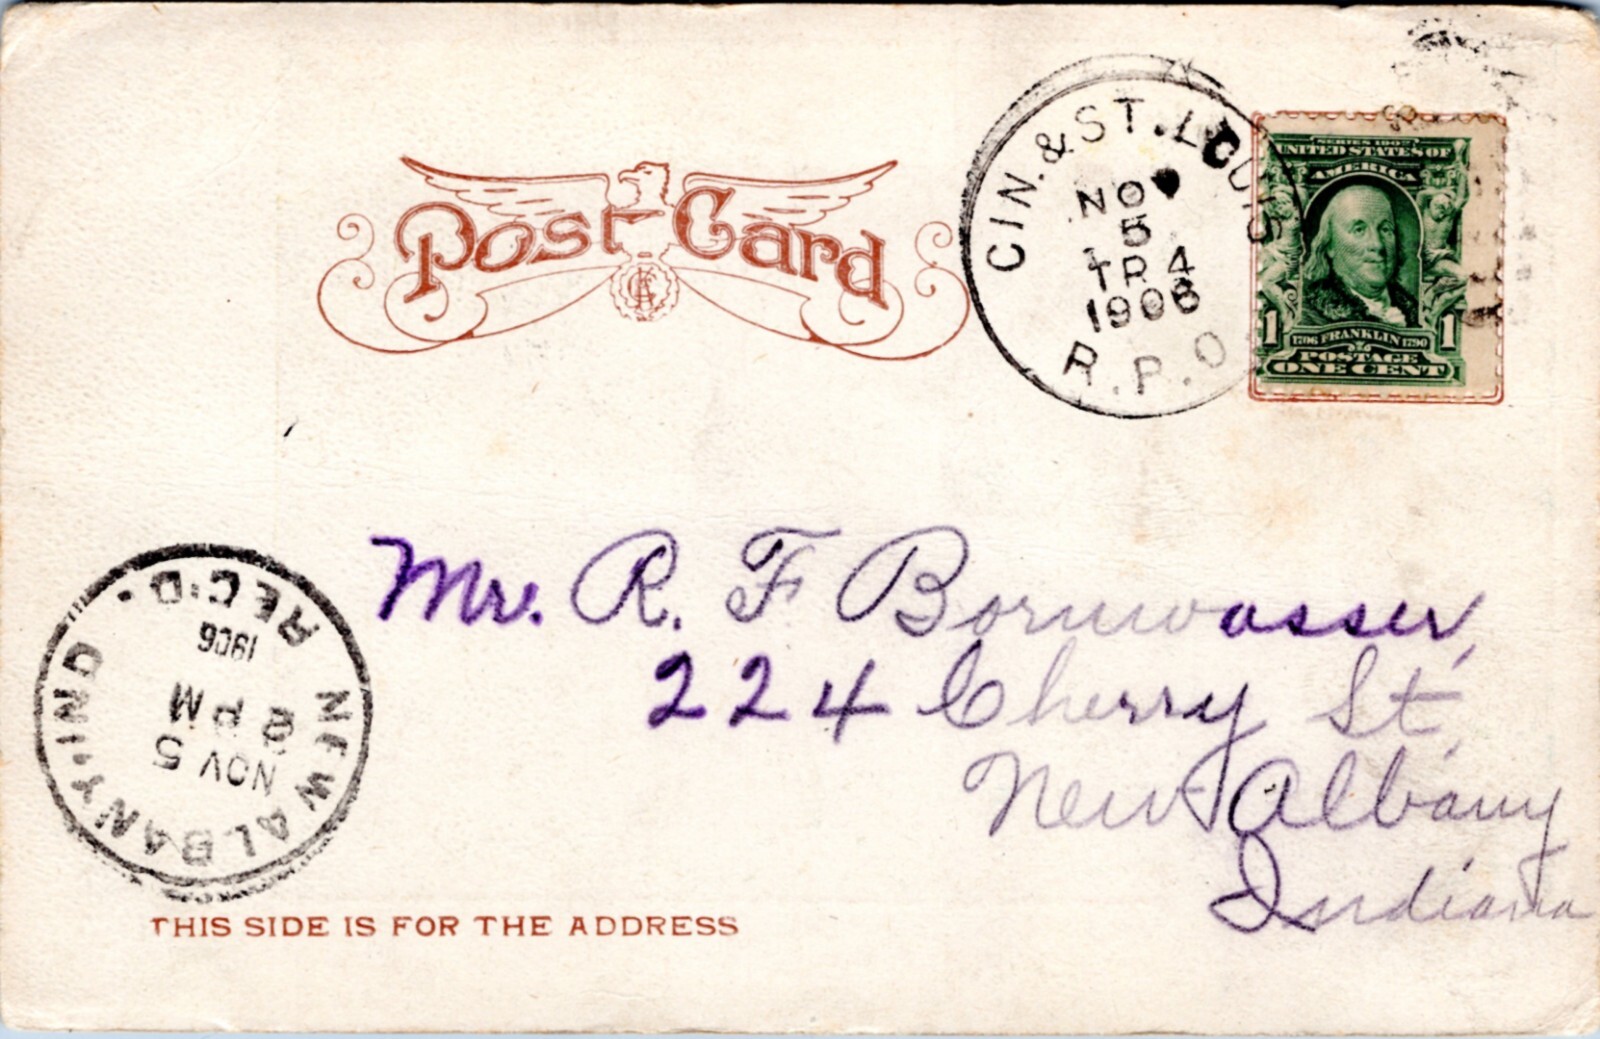 Post Card
CIN. & ST. LOUIS
NOV
5
TR 4
1906
R.P.O.
SERIES 1902
UNITED STATES OF
AMERICA
1 1
1706 FRANKLIN 1790
POSTAGE
ONE CENT
Mr. R. F Bornwasser,
224 Cherry St,
New Albany
Indiana
NEW ALBANY, IND.
NOV 5
2 PM
1906
REC'D.
THIS SIDE IS FOR THE ADDRESS